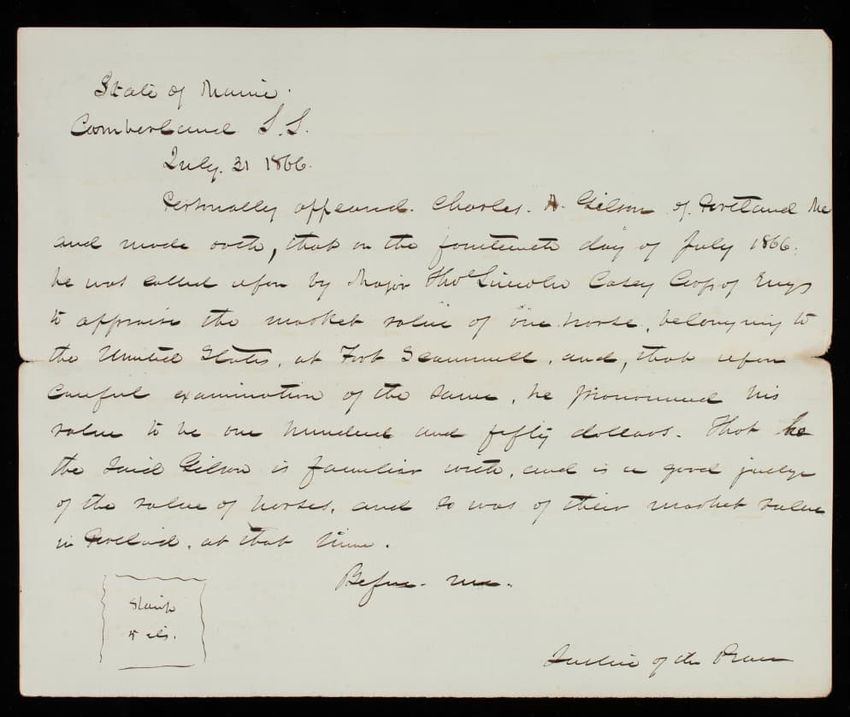 State of Maine.
Cumberland S.S.
July. 31 1866.
Personally appeared. Charles. A. Gilson of Portland Me
and made oath, that on the fourteenth day of July 1866.
he was called upon by Major Thos Lincoln Casey Corps of Engrs
to appraise the market value of one horse, belonging to
the United States, at Fort Scammell, and, that upon
careful examination of the same, he pronounced his
value to be one hundred and fifty dollars. That he
the said Gilson is familiar with, and is a good judge
of the value of horses, and so was of their market value
in Portland, at that time.
Before me.
Stamp
5 cts.
Justice of the Peace